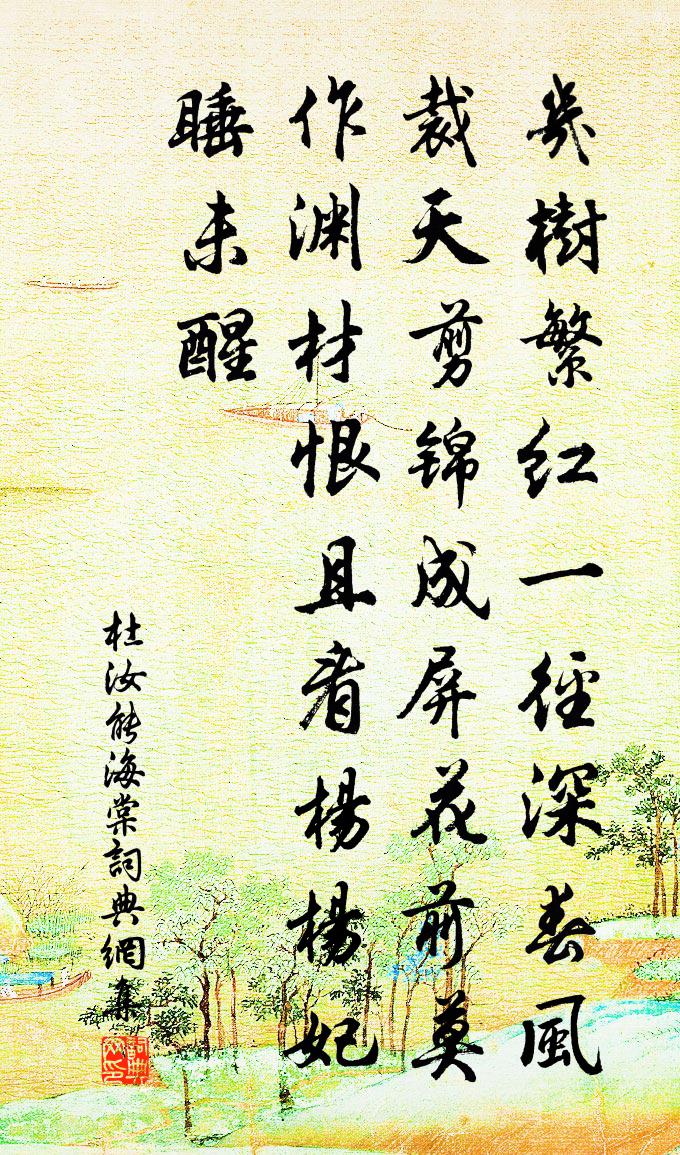 幾樹繁红一徑深春風
裁天剪锦成屏花前莫
作渊材恨且看楊楊妃
睡未醒
杜汝能海棠詞典網集